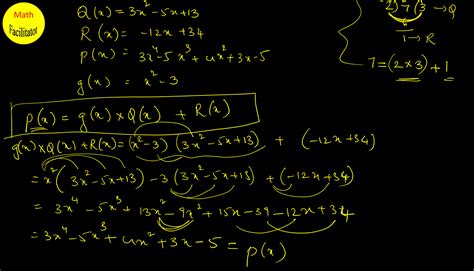 Math
Facilitator
Q(x) = 3x² - 5x + 13
R(x) = -12x + 34
p(x) = 3x⁴ - 5x³ + 4x² + 3x - 5
g(x) = x² - 3
p(x) = g(x) × Q(x) + R(x)
g(x) × Q(x) + R(x) = (x² - 3) (3x² - 5x + 13) + (-12x + 34)
= x² (3x² - 5x + 13) - 3 (3x² - 5x + 13) + (-12x + 34)
= 3x⁴ - 5x³ + 13x² - 9x² + 15x - 39 - 12x + 34
= 3x⁴ - 5x³ + 4x² + 3x - 5 = p(x)
2) 7 (3 → Q
1 → R
7 = (2 × 3) + 1